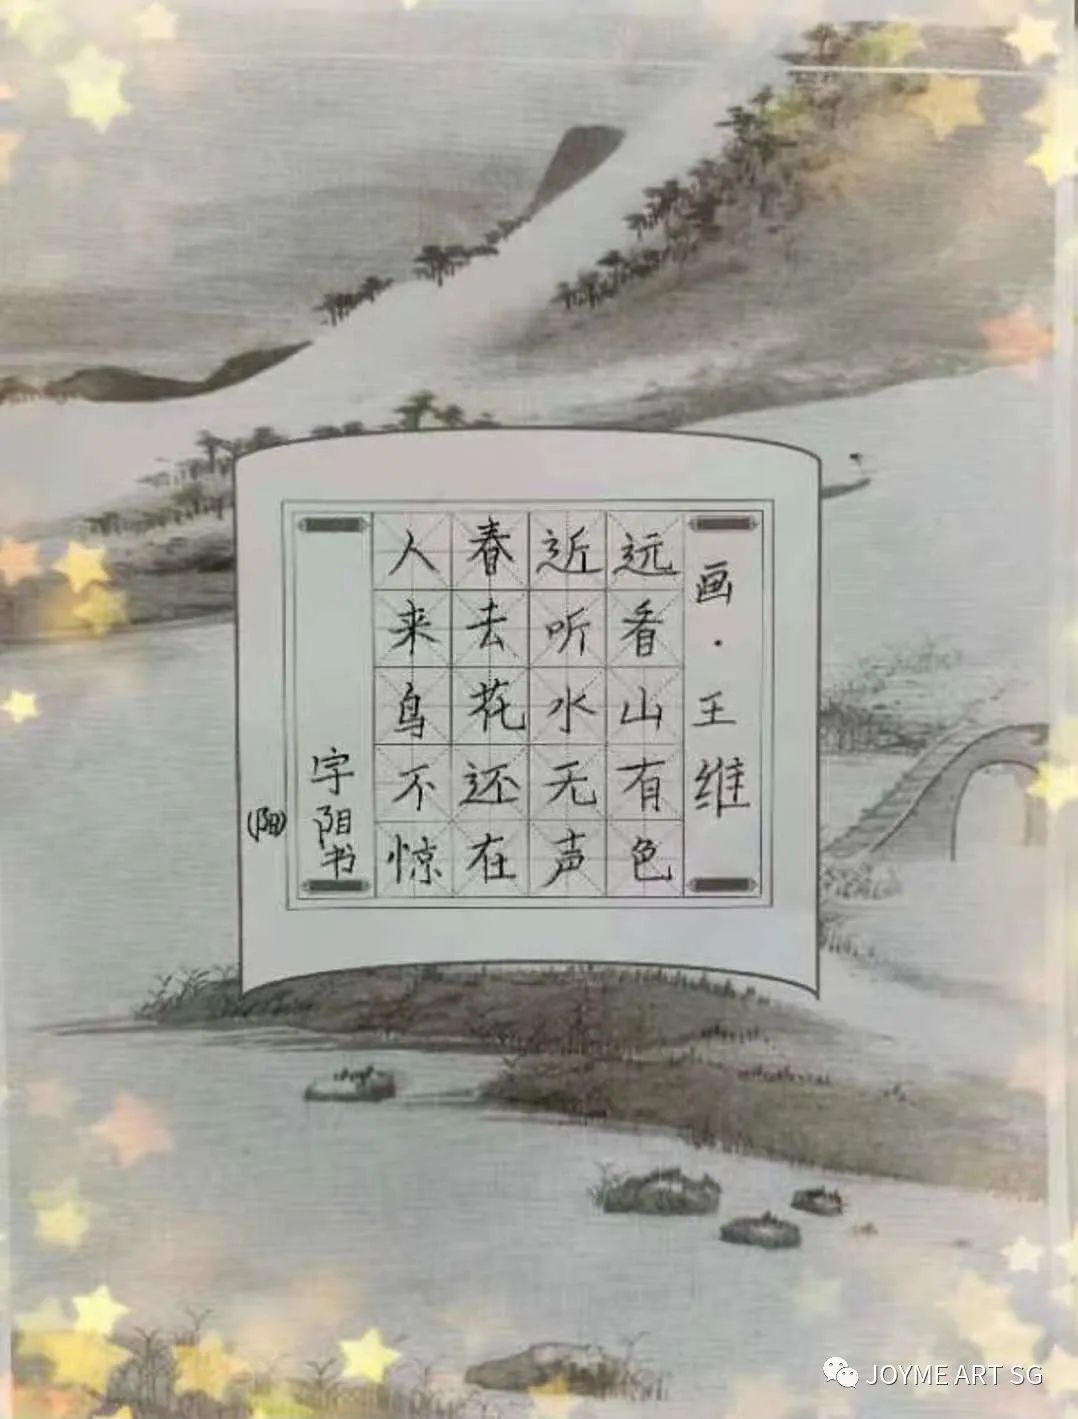 画·王维
远看山有色
近听水无声
春去花还在
人来鸟不惊
字阳书
(阳)
JOYME ART SG